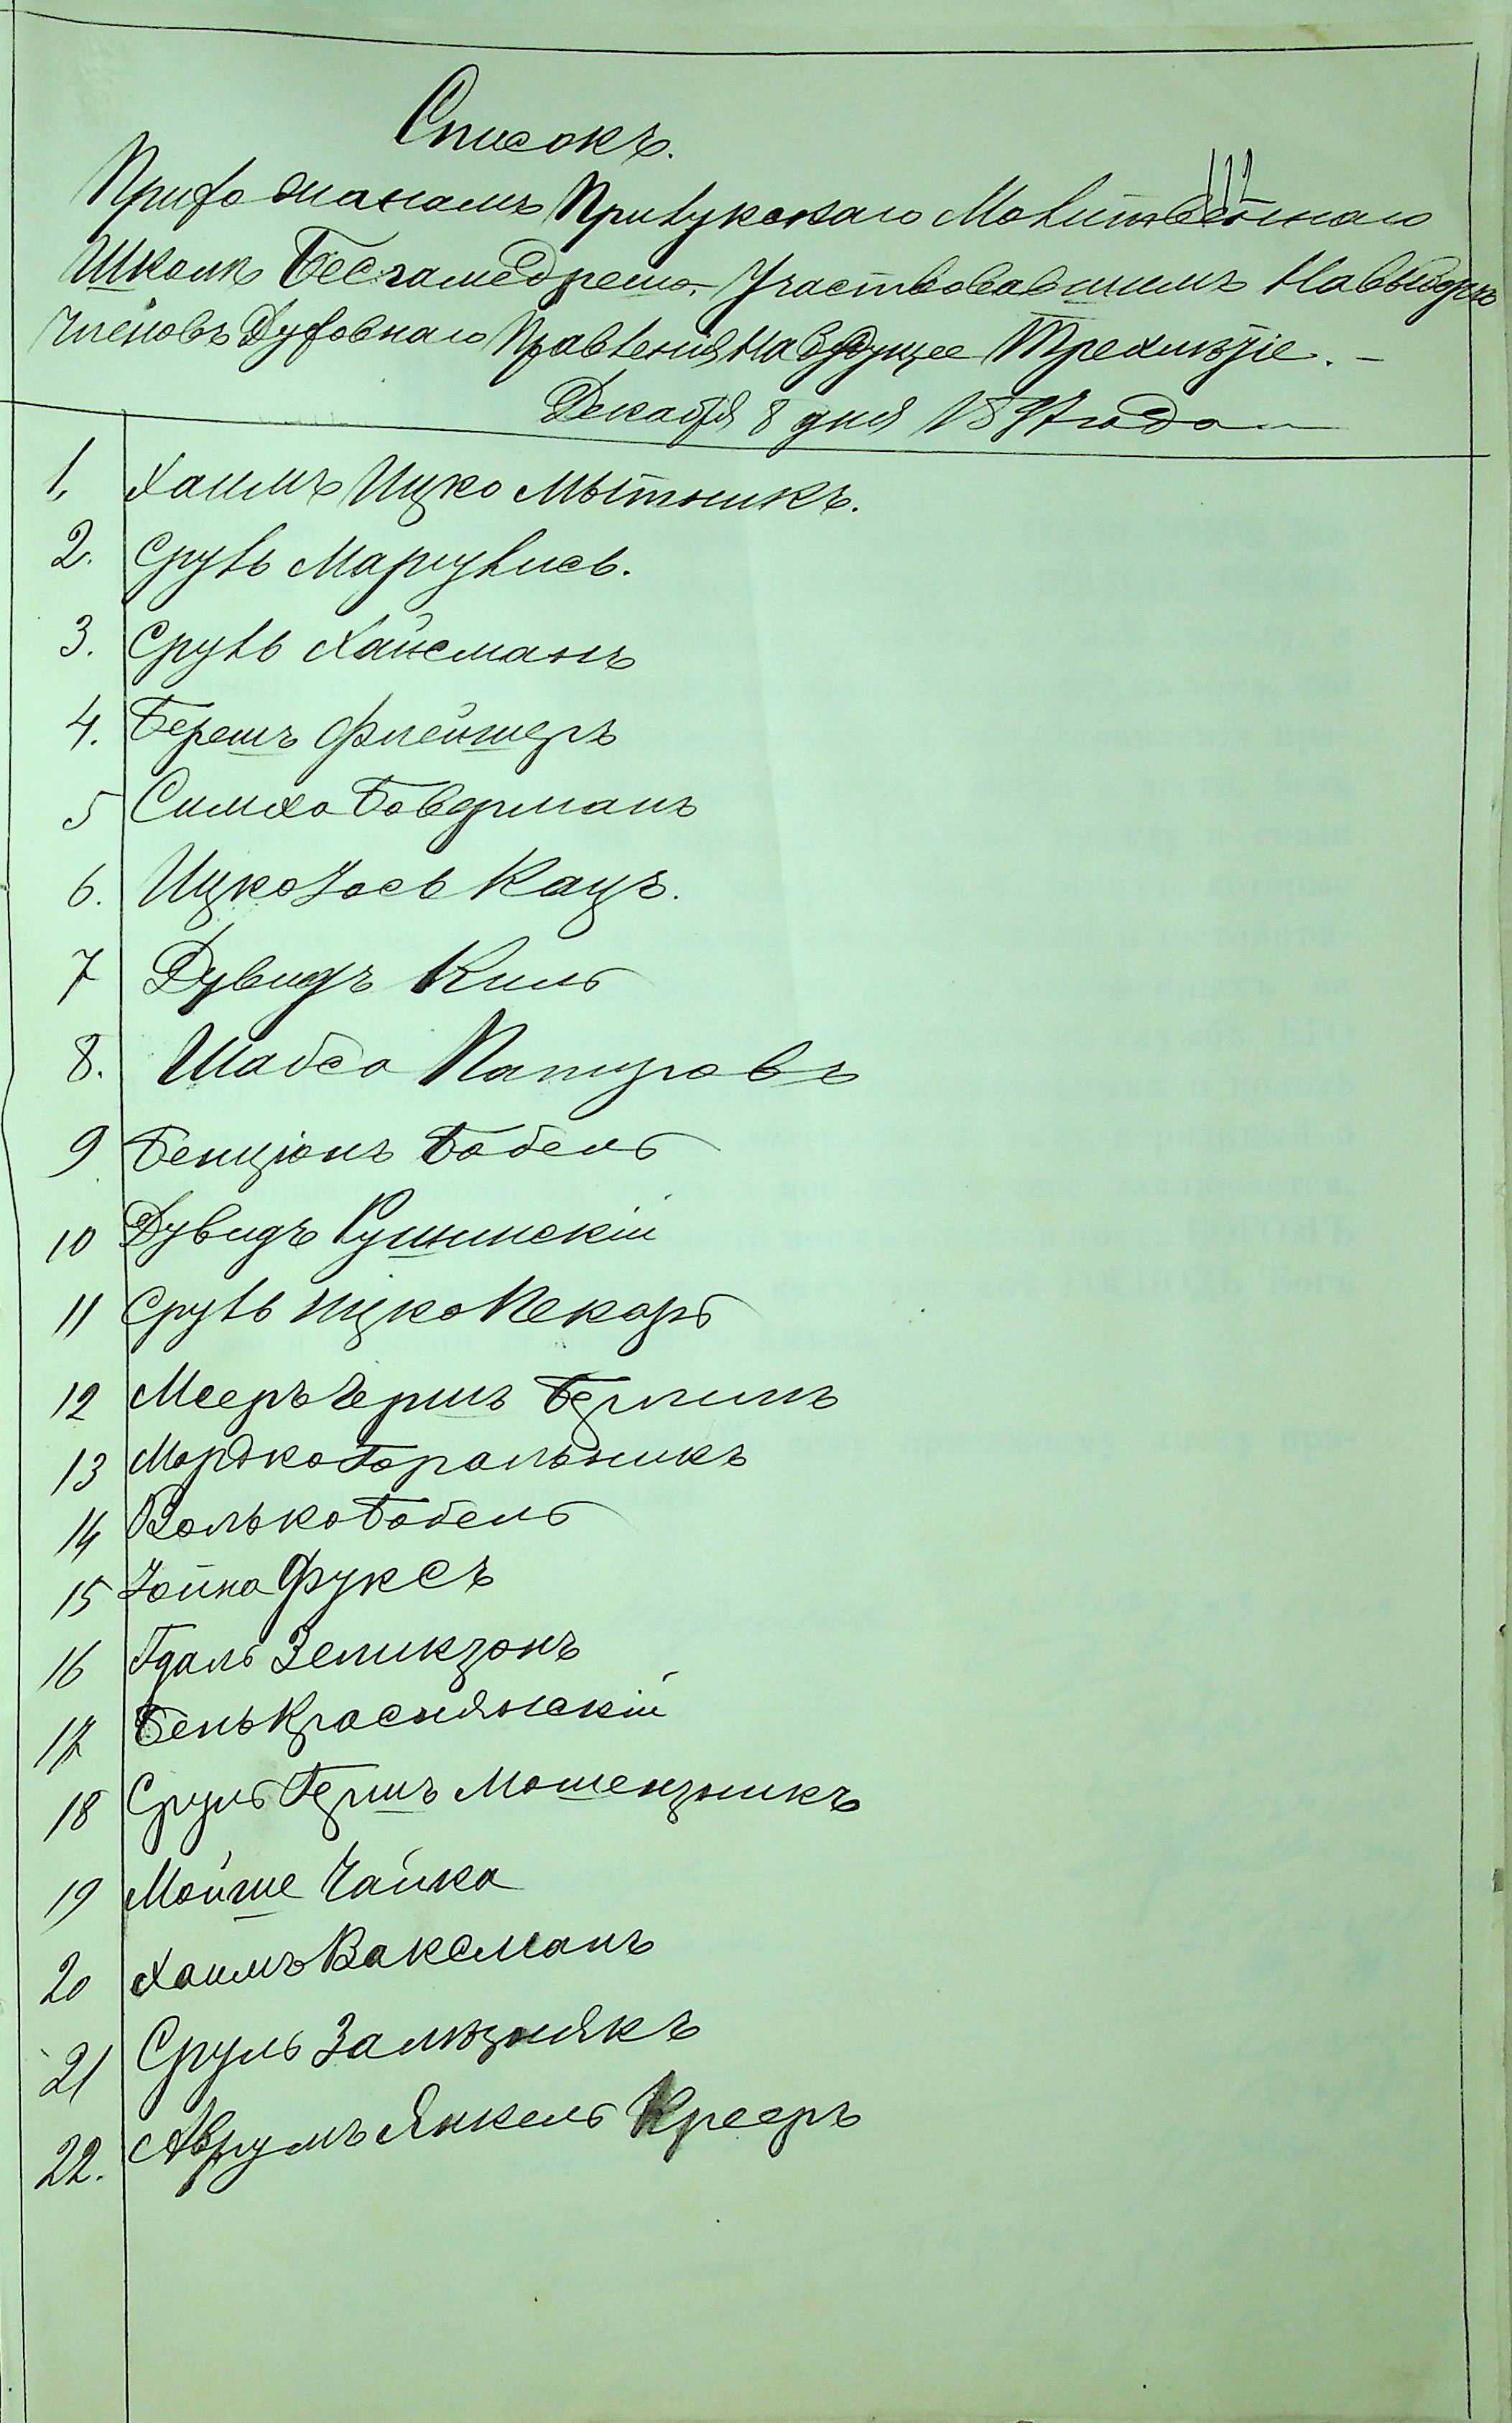 Списокъ.
112
Прихожанамъ Прилукскаго Молитвеннаго
Школы Бесгамедрешъ, Участвовавшимъ На выборъ
Членовъ Духовнаго Правленія на будущее Трехлѣтіе. –
Декабря 8 дня 1897 года
1, Хаимъ Ицко Мытникъ.
2. Сруль Маргулисъ.
3. Сруль Хайсманъ
4. Берешъ Флейшеръ
5 Симха Говерманъ
6. Ицко Іось Кацъ.
7 Дувидъ Киль
8. Шабса
9 Бенціонъ Бабель
10 Дувидъ Рушинскій
11 Сруль Ицко Пекарь
12 Мееръ Гершъ Берлинъ
13 Мордко Горальникъ
14 Волько Бабель
15 Іойна Фуксъ
16 Гдаль Зеликзонъ
17 Бень Краснянскій
18 Сруль Гершъ Мошензникъ
19 Мойше Чайка
20 Хаимъ Ваксманъ
21 Сруль Залѣзнякъ
22. Аврумъ Янкель Крееръ